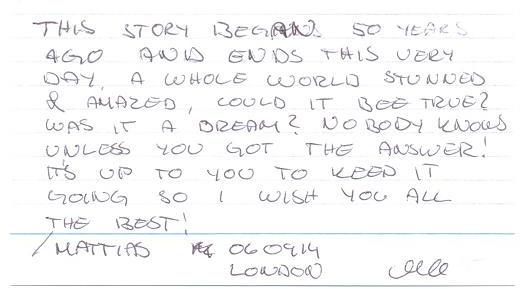 THIS STORY BEGAN 50 YEARS
AGO AND ENDS THIS VERY
DAY, A WHOLE WORLD STUNNED
& AMAZED, COULD IT BEE TRUE?
WAS IT A DREAM? NOBODY KNOWS
UNLESS YOU GOT THE ANSWER!
IT'S UP TO YOU TO KEEP IT
GOING SO I WISH YOU ALL
THE BEST!
/MATTIAS 060914
LONDON